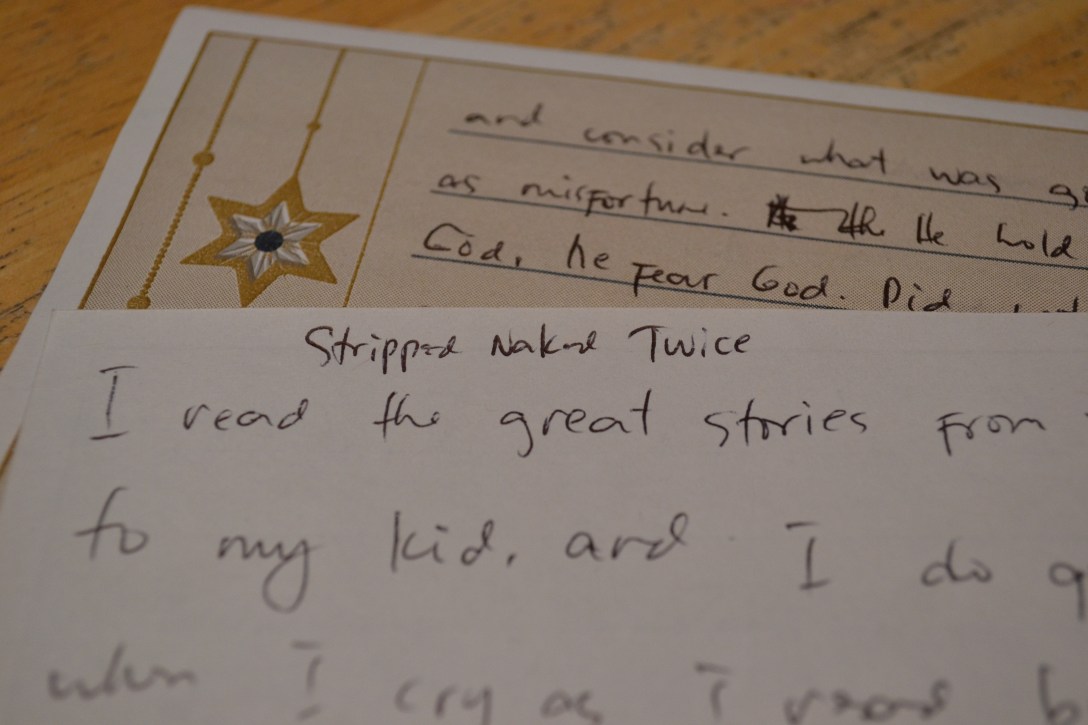 and consider what was
as misfortune. He hold
God, he Fear God. Did
Stripped Naked Twice
I read the great stories From
to my kid, and I do
when I cry as I read